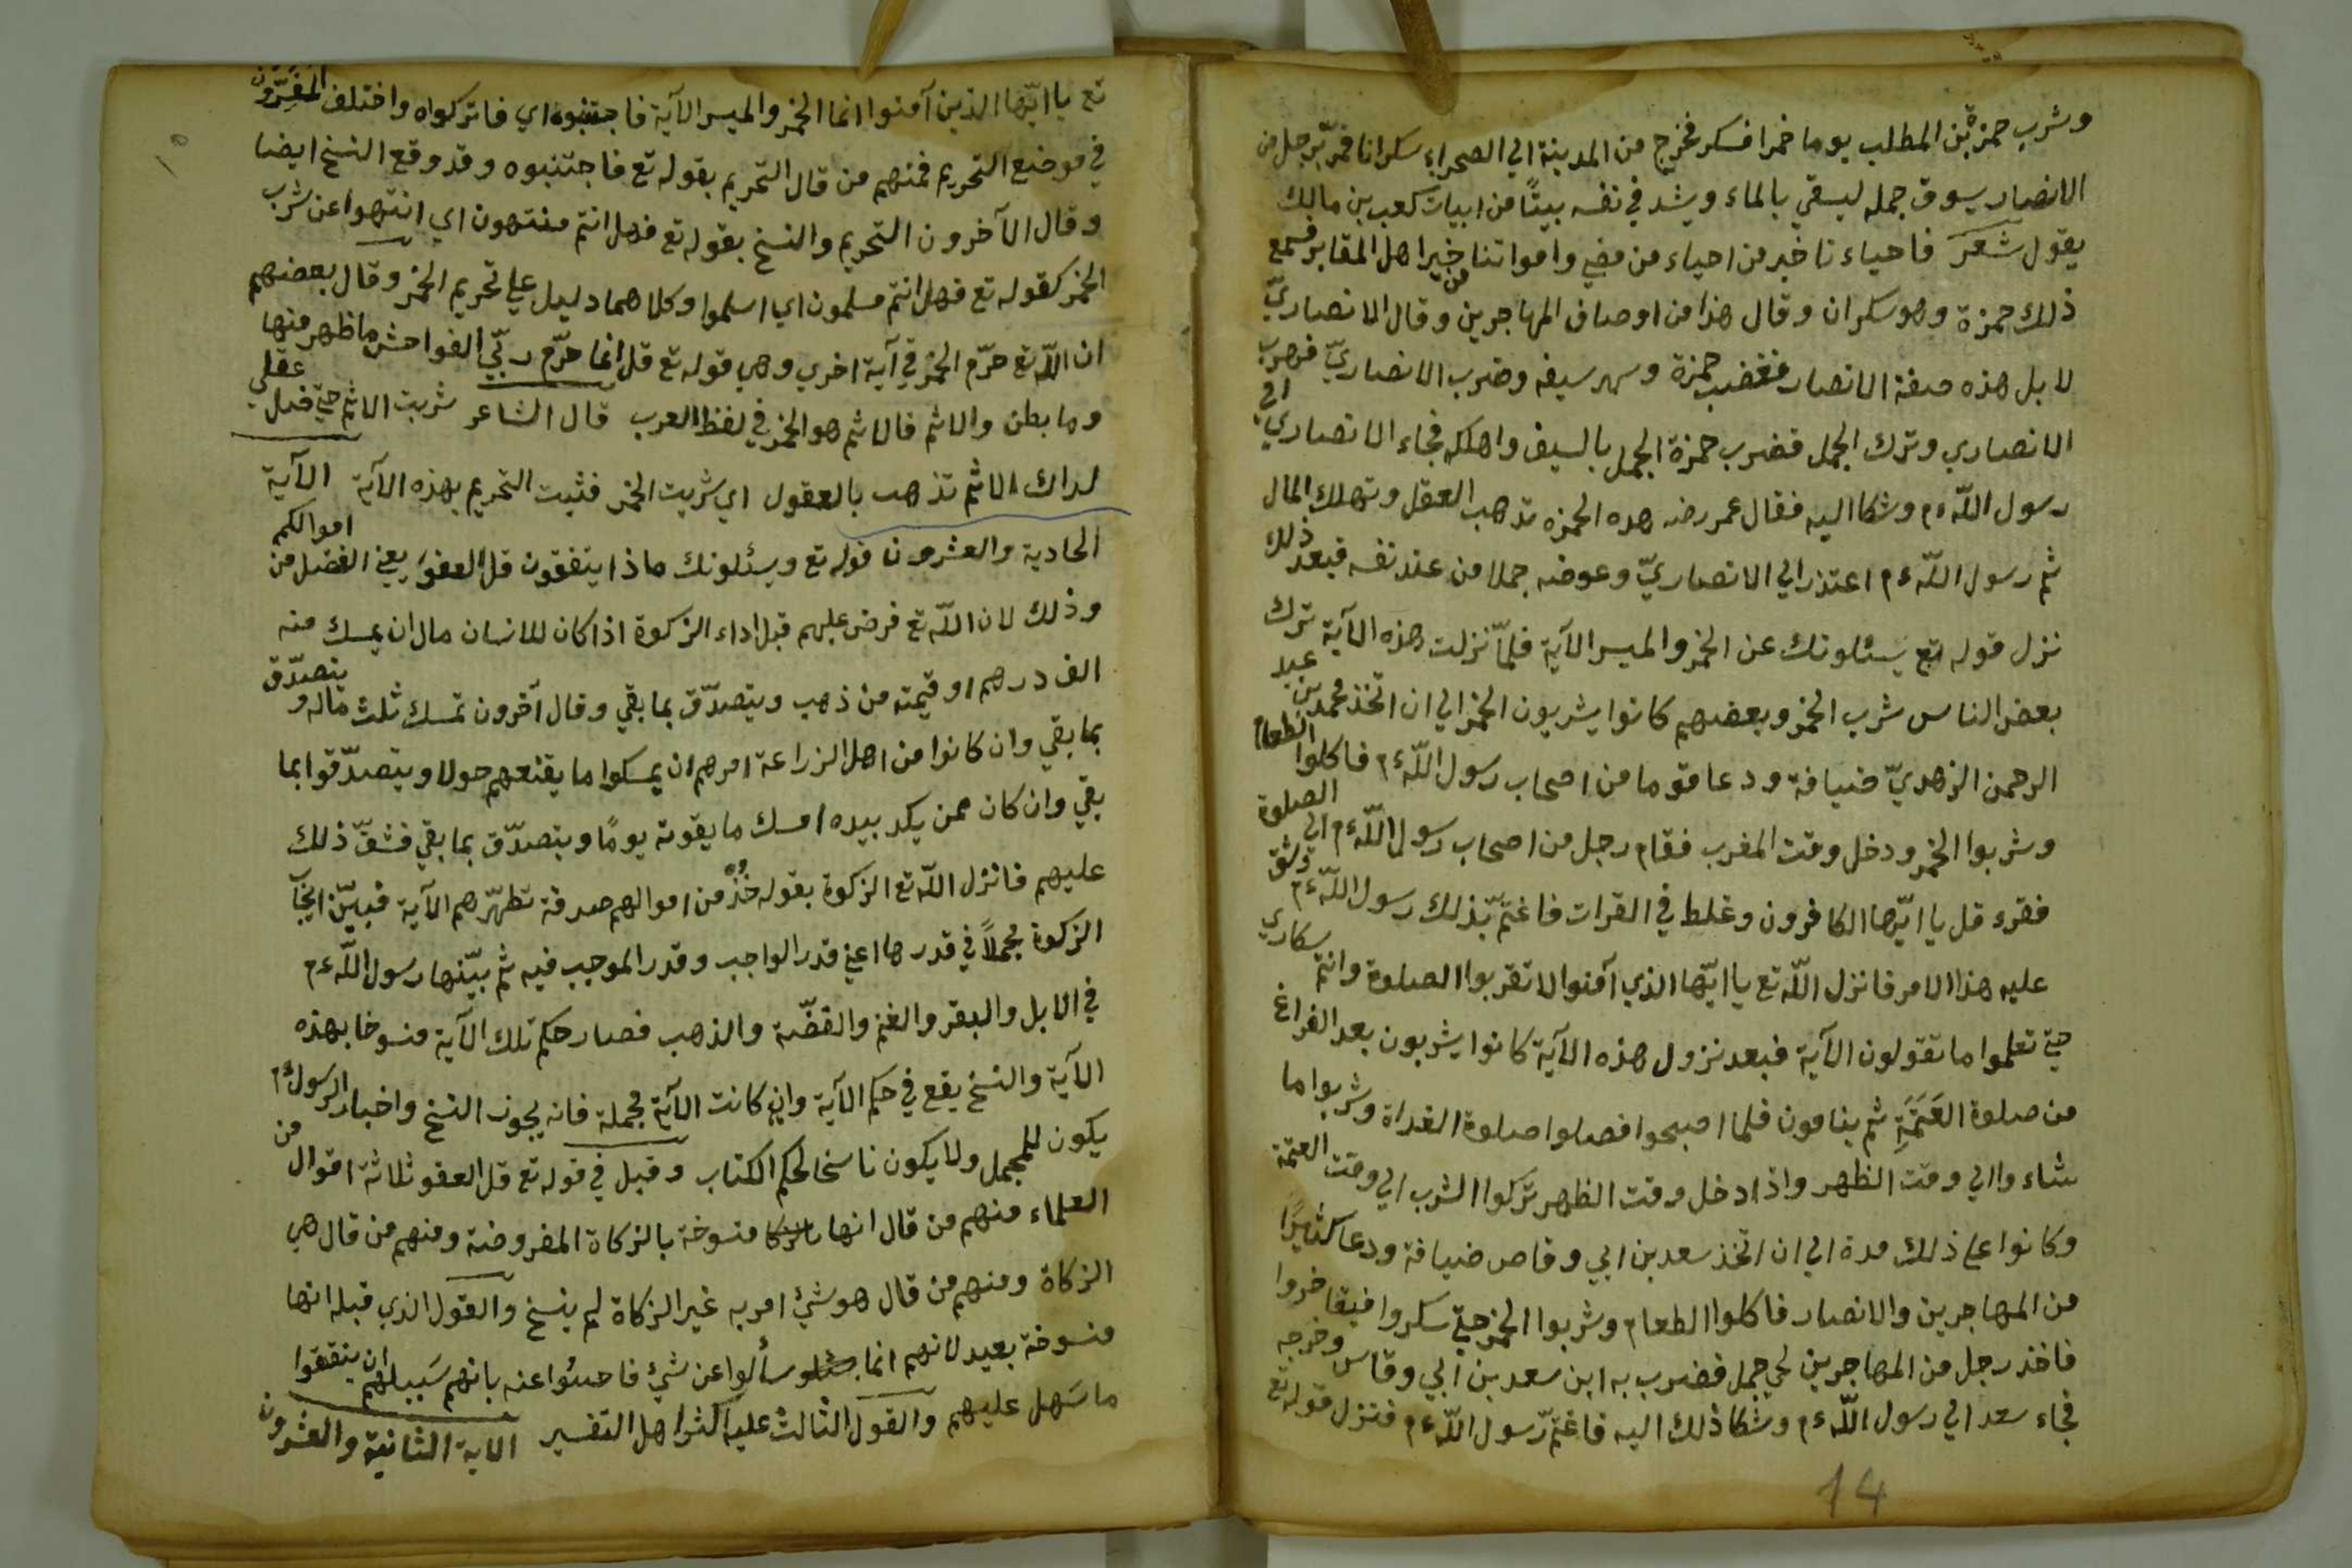 وشرب حمزة بن المطلب يوما خمرا فسكر فخرج من المدينة الي الصحراء سكرانا فمرّ برجل من
الانصار يسوق جمله ليسقي بالماء وينشد في نفسه بيتًا من ابيات كعب بن مالك
يقول شعر فاحياءنا خير من احياء من مضي وامواتنا من خير اهل المقابر فسمع
ذلك حمزة وهو سكران وقال هذا من اوصاف المهاجرين وقال الانصاريّ
لا بل هذه صفة الانصار فغضب حمزة وسهر سيفه وضرب الانصاريّ فهرب
الانصاري وترك الجمل فضرب حمزة الجمل بالسيف واهلكه فجاء الانصاري الي
رسول اللّه ءم وشكا اليه فقال عمر رضه هده الخمره تدهب العقل وتهلك المال
ثم رسول اللّه ءم اعتذر الي الانصاريّ وعوضه جملا من عند نفسه فبعد ذلك
نزل قوله تع يسئلونك عن الخمر والميسر الآية فلمّا نزلت هذه الآية ترك
بعض الناس شرب الخمر وبعضهم كانوا يشربون الخمر الي ان اتخذ محمد بن عبد
الرحمن الزهديّ ضيافة ودعا قوما من اصحاب رسول اللّه ءم فاكلوا الطعام
وشربوا الخمر ودخل وقت المغرب فقام رجل من اصحاب رسول اللّه ءم الي الصلوة
فقرء قل يا ايّها الكافرون وغلط في القرات فاغتمّ بذلك رسول اللّه ءم وشق
عليه هذا الامر فانزل اللّه تع يا ايّها الذي آمنوا لا تقربوا الصلوة وانتم سكاري
حتي تعلموا ما تقولون الآية فبعد نزول هذه الآية كانوا يشربون بعد الفراغ
من صلوة العَتَمَةِ ثم ينامون فلما اصبحوا فصلوا صلوة الغداة وشربوا ما
شاءوا الي وقت الظهر واذا دخل وقت الظهر تركوا الشرب الي وقت العتمة
وكانوا علي ذلك مدة الي ان اتخذ سعد بن ابي وقاص ضيافة ودعا كثيرًا
من المهاجرين والانصار فاكلوا الطعام وشربوا الخمر حتي سكروا فيفاخروا
فاخذ رجل من المهاجرين لحي جمل فضرب به ابن سعد بن ابي وقاس وخرجه
فجاء سعد الي رسول اللّه ءم وشكا ذلك اليه فاغتمّ رّسول اللّه ءم فنزل قوله تع
14
تع يا ايّها الذين آمنوا انما الخمر والميسر الآية فاجتنبوه اي فاتركواه واختلف المفسّرون
في موضع التحريم فمنهم من قال التحريم بقوله تع فاجتنبوه وقد وقع النسخ ايضا
وقال الآخرون التحريم والنسخ بقوله تع فهل انتم منتهون اي انتهوا عن شرب
الخمر كقوله تع فهل انتم مسلمون اي اسلموا وكلاهما دليل علي تحريم الخمر وقال بعضهم
ان اللّه تع حرّم الخمر في آية اخري وهي قوله تع قل انما حرّم ربّي الفواحش ما ظهر منها
وما بطن والاثم فالاثم هو الخمر في لفظ العرب قال الشاعر شربت الاثم حتي ضل عقلي
لداك الاثم تذهب بالعقول اي شربت الخمر فثبت التحريم بهذه الآية الآية
الحادية والعشرون قوله تع ويسئلونك ماذا ينفقون قل العفوَ يعني الفضل من اموالكم
وذلك لان اللّه تع فرض عليهم قبل اداء الزكوة اذا كان للانسان مال ان يمسك منه
الف درهم او قيمته من ذهب ويتصدّق بما بقي وقال آخرون تمسك ثلث ماله ويتصدّق
بما بقي وان كانوا من اهل الزراعة امرهم ان يمسكوا ما يقنعهم حولا ويتصدّقوا بما
بقي وان كان ممن يكد بيده امسك ما يقوته يومًا ويتصدّق بما بقي فشقّ ذلك
عليهم فانزل اللّه تع الزكوة بقوله خُذْ من اموالهم صدقة تطهّرهم الآية فبيّن ايجاب
الزكوة مجملاً في قدرها اعني قدر الواجب وقدر الموجب فيه ثم بيّنها رسول اللّه ءم
في الابل والبقر والغنم والفضّة والذهب فصار حكم تلك الآية منسوخا بهذه
الآية والنسخ يقع في حكم الآية وان كانت الآية مجملة فانه يجوز النسخ واخبار الرسول ءم
يكون للمجمل ولا يكون ناسخا لحكم الكتاب وقيل في قوله تع قل العفو ثلاثة اقوال من
العلماء منهم من قال انها منسوخة بالزكاة المفروضة ومنهم من قال هي
الزكاة ومنهم من قال هو شئ امر به غير الزكاة لم ينسخ والقول الذي قبله انها
منسوخة بعيد لانهم انما سألوا عن شئ فاحسُوا عنه بانهم سَبيلهم ان ينفقوا
ما سَهل عليهم والقول الثالث عليه اكثر اهل التفسير الاية الثانية والعشرون